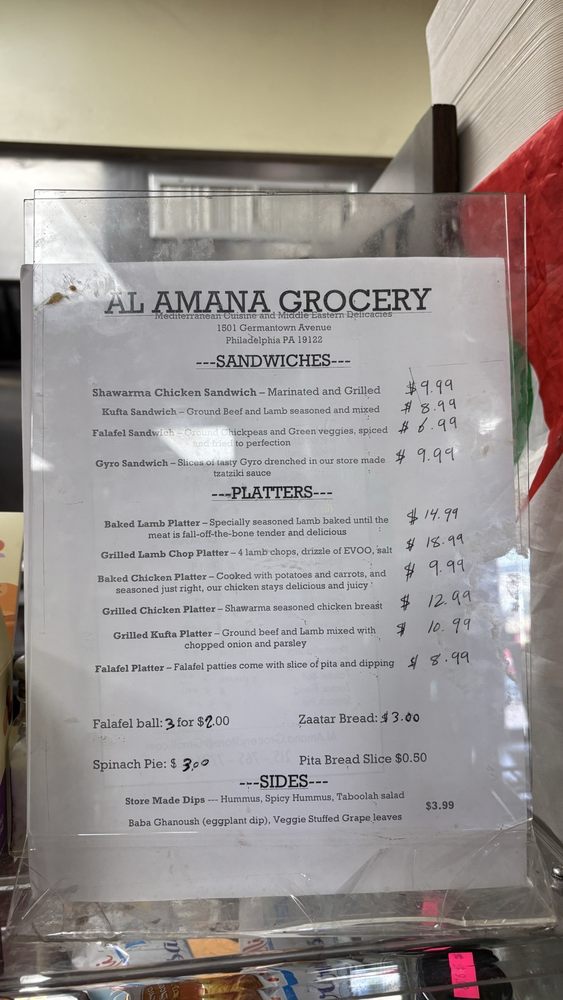 AL AMANA GROCERY
Mediterranean Cuisine and Middle Eastern Delicacies
1501 Germantown Avenue
Philadelphia PA 19122
---SANDWICHES---
Shawarma Chicken Sandwich – Marinated and Grilled $9.99
Kufta Sandwich – Ground Beef and Lamb seasoned and mixed $8.99
Falafel Sandwich – Ground Chickpeas and Green veggies, spiced $6.99
and fried to perfection
Gyro Sandwich – Slices of tasty Gyro drenched in our store made $9.99
tzatziki sauce
---PLATTERS---
Baked Lamb Platter – Specially seasoned Lamb baked until the $14.99
meat is fall-off-the-bone tender and delicious
Grilled Lamb Chop Platter – 4 lamb chops, drizzle of EVOO, salt $18.99
Baked Chicken Platter – Cooked with potatoes and carrots, and $9.99
seasoned just right, our chicken stays delicious and juicy
Grilled Chicken Platter – Shawarma seasoned chicken breast $12.99
Grilled Kufta Platter – Ground beef and Lamb mixed with $10.99
chopped onion and parsley
Falafel Platter – Falafel patties come with slice of pita and dipping $8.99
Falafel ball: 3 for $2.00 Zaatar Bread: $3.00
Spinach Pie: $ 3.00 Pita Bread Slice $0.50
---SIDES---
Store Made Dips --- Hummus, Spicy Hummus, Taboolah salad $3.99
Baba Ghanoush (eggplant dip), Veggie Stuffed Grape leaves